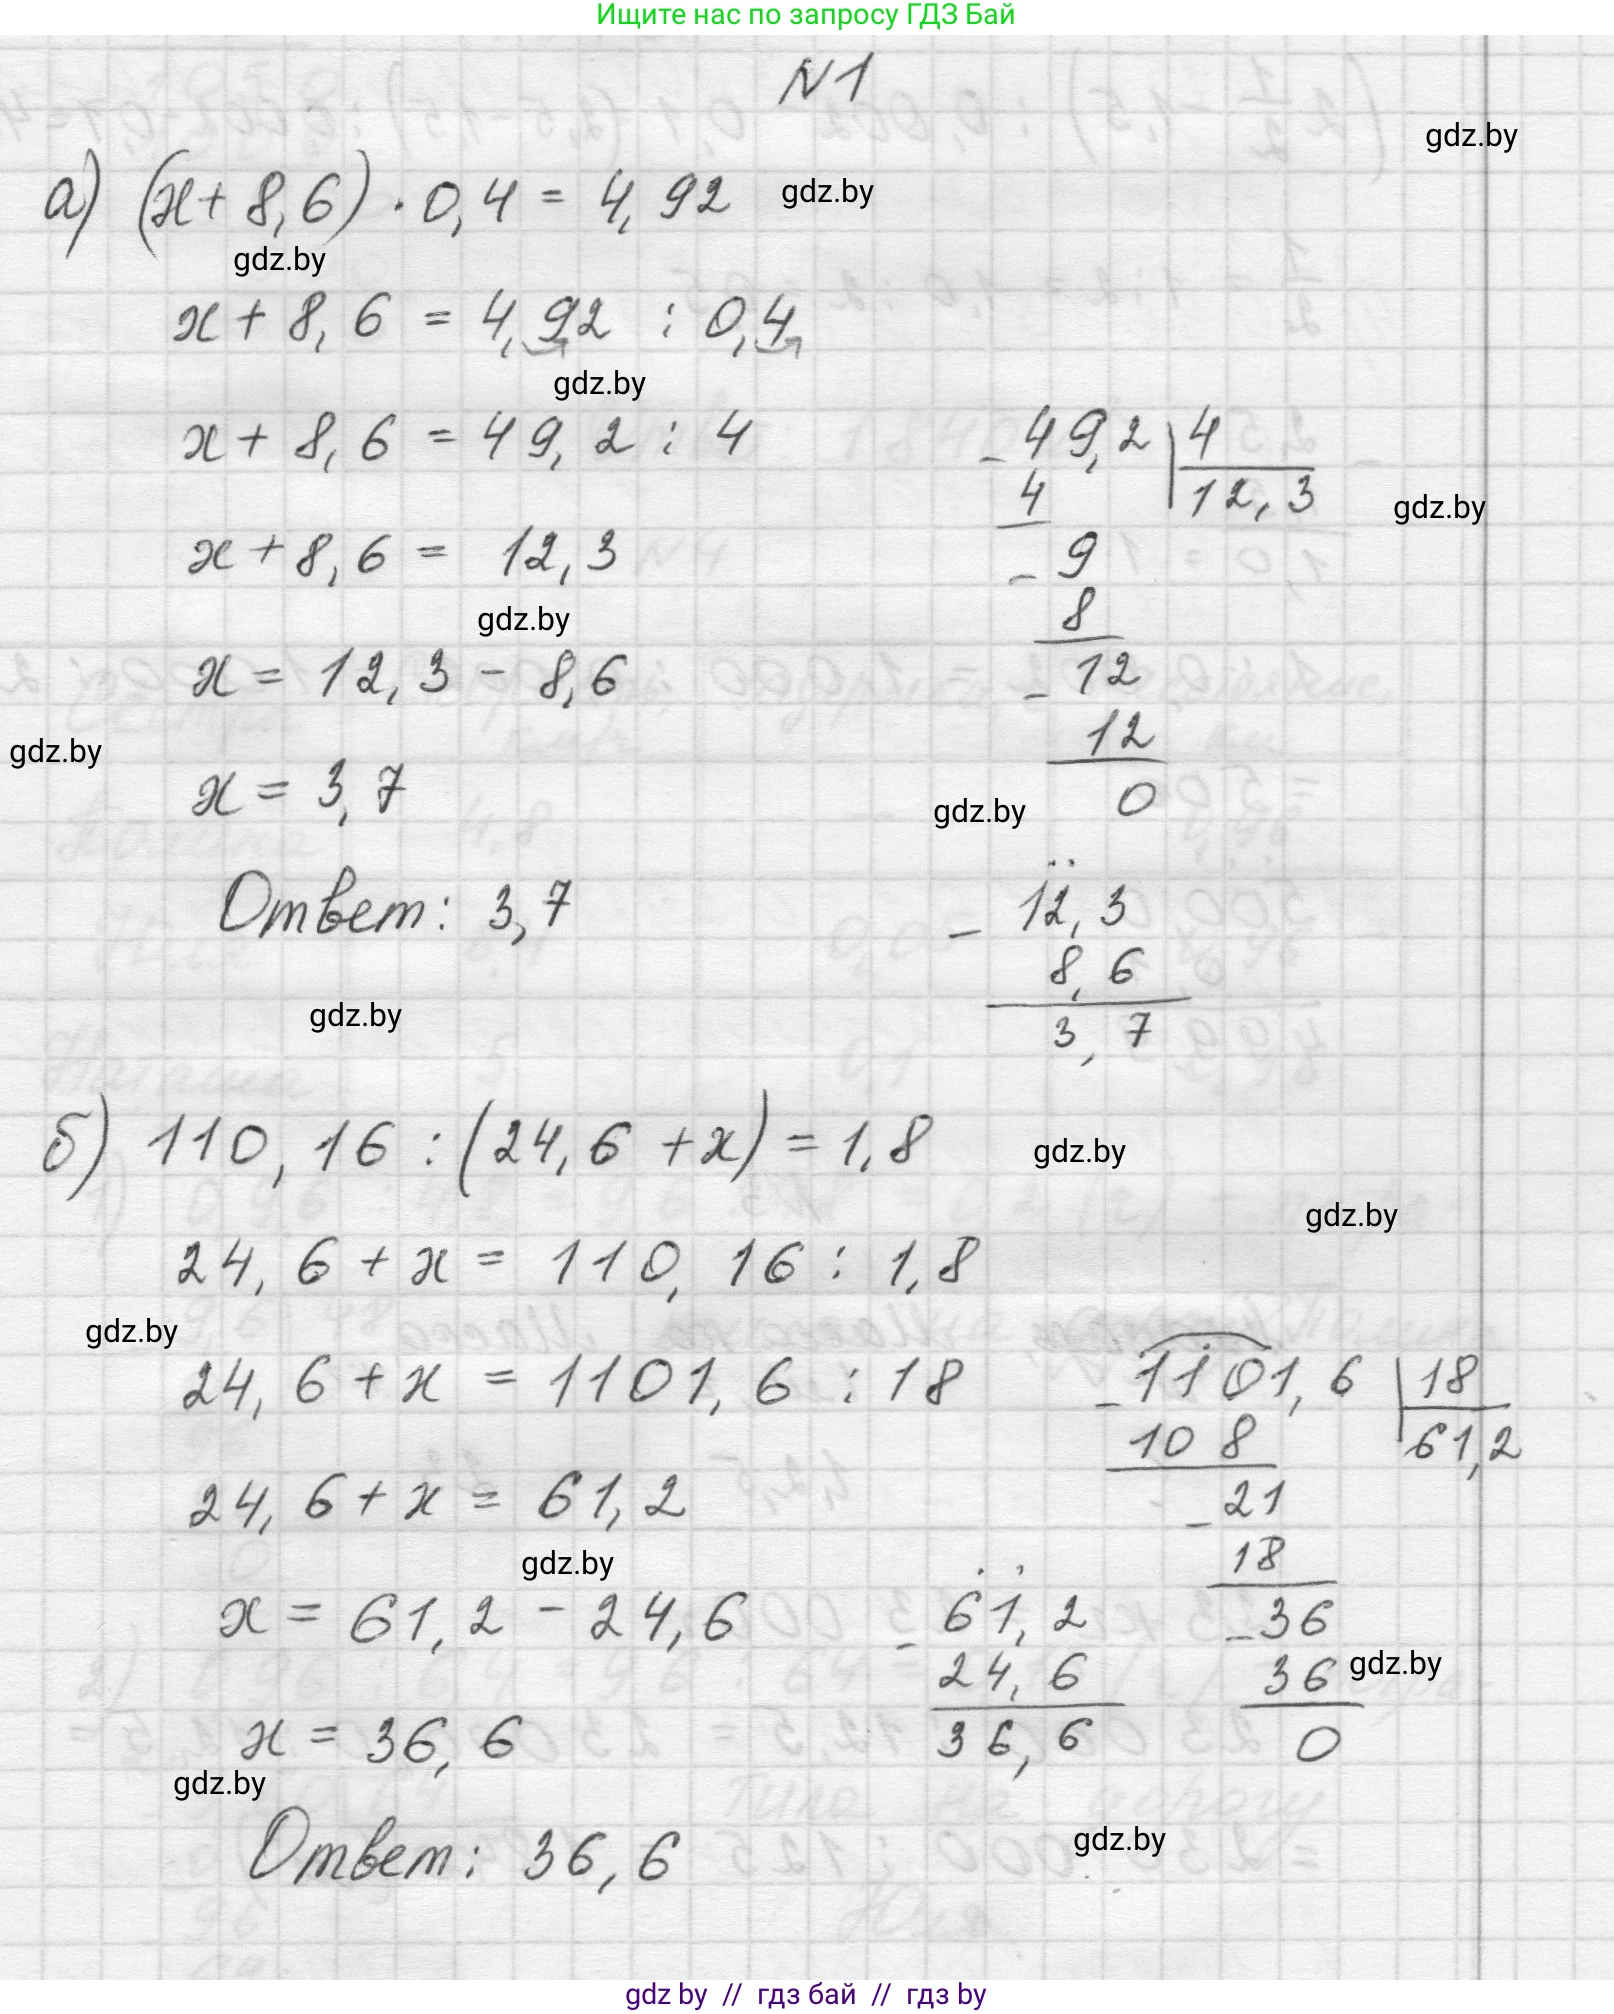 Ищите нас по запросу ГДЗ Бай
N1
gdz.by
а) (x + 8,6) · 0,4 = 4,92
gdz.by
gdz.by
x + 8,6 = 4,92 : 0,4
gdz.by
x + 8,6 = 49,2 : 4
- 49,2 | 4
4 12,3
gdz.by
x + 8,6 = 12,3
- 9
8
gdz.by
x = 12,3 - 8,6
- 12
12
gdz.by
x = 3,7
0
gdz.by
Ответ: 3,7
- 12,3
8,6
3,7
gdz.by
б) 110,16 : (24,6 + x) = 1,8
gdz.by
gdz.by
24,6 + x = 110,16 : 1,8
gdz.by
24,6 + x = 1101,6 : 18
- 1101,6 | 18
108 61,2
24,6 + x = 61,2
- 21
18
gdz.by
x = 61,2 - 24,6
- 61,2
24,6
36,6
- 36
36
0
gdz.by
x = 36,6
gdz.by
Ответ: 36,6
gdz.by
gdz by // гдз бай // гдз by